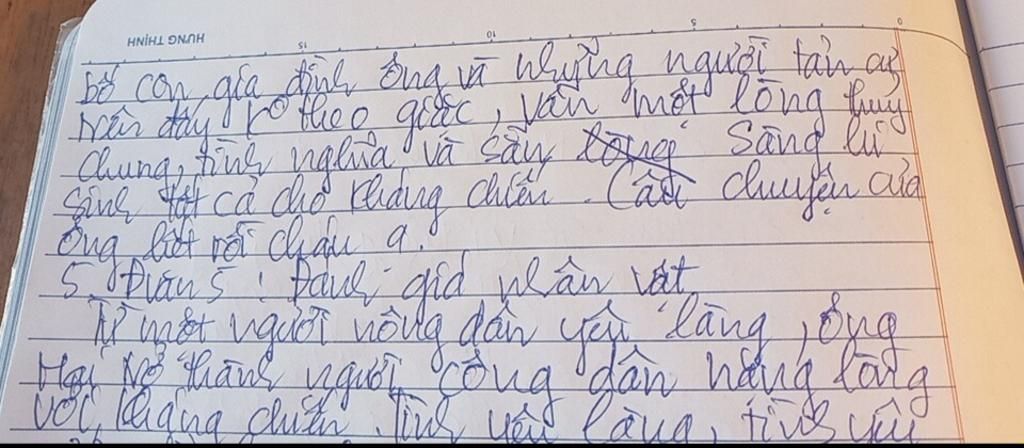 HƯNG THỊNH
15 10 5 0
bố con gia đình ông và những người tản cư
trên đây k theo giặc, vẫn một lòng thuỷ
chung, tình nghĩa và sẵn sàng hi
sinh tất cả cho kháng chiến. Câu chuyện của
ông
5. Đoạn 5: Đánh giá nhân vật
Từ một người nông dân yêu làng, ông
Hai trở thành người công dân nặng lòng
với kháng chiến. Tình yêu làng, tình yêu